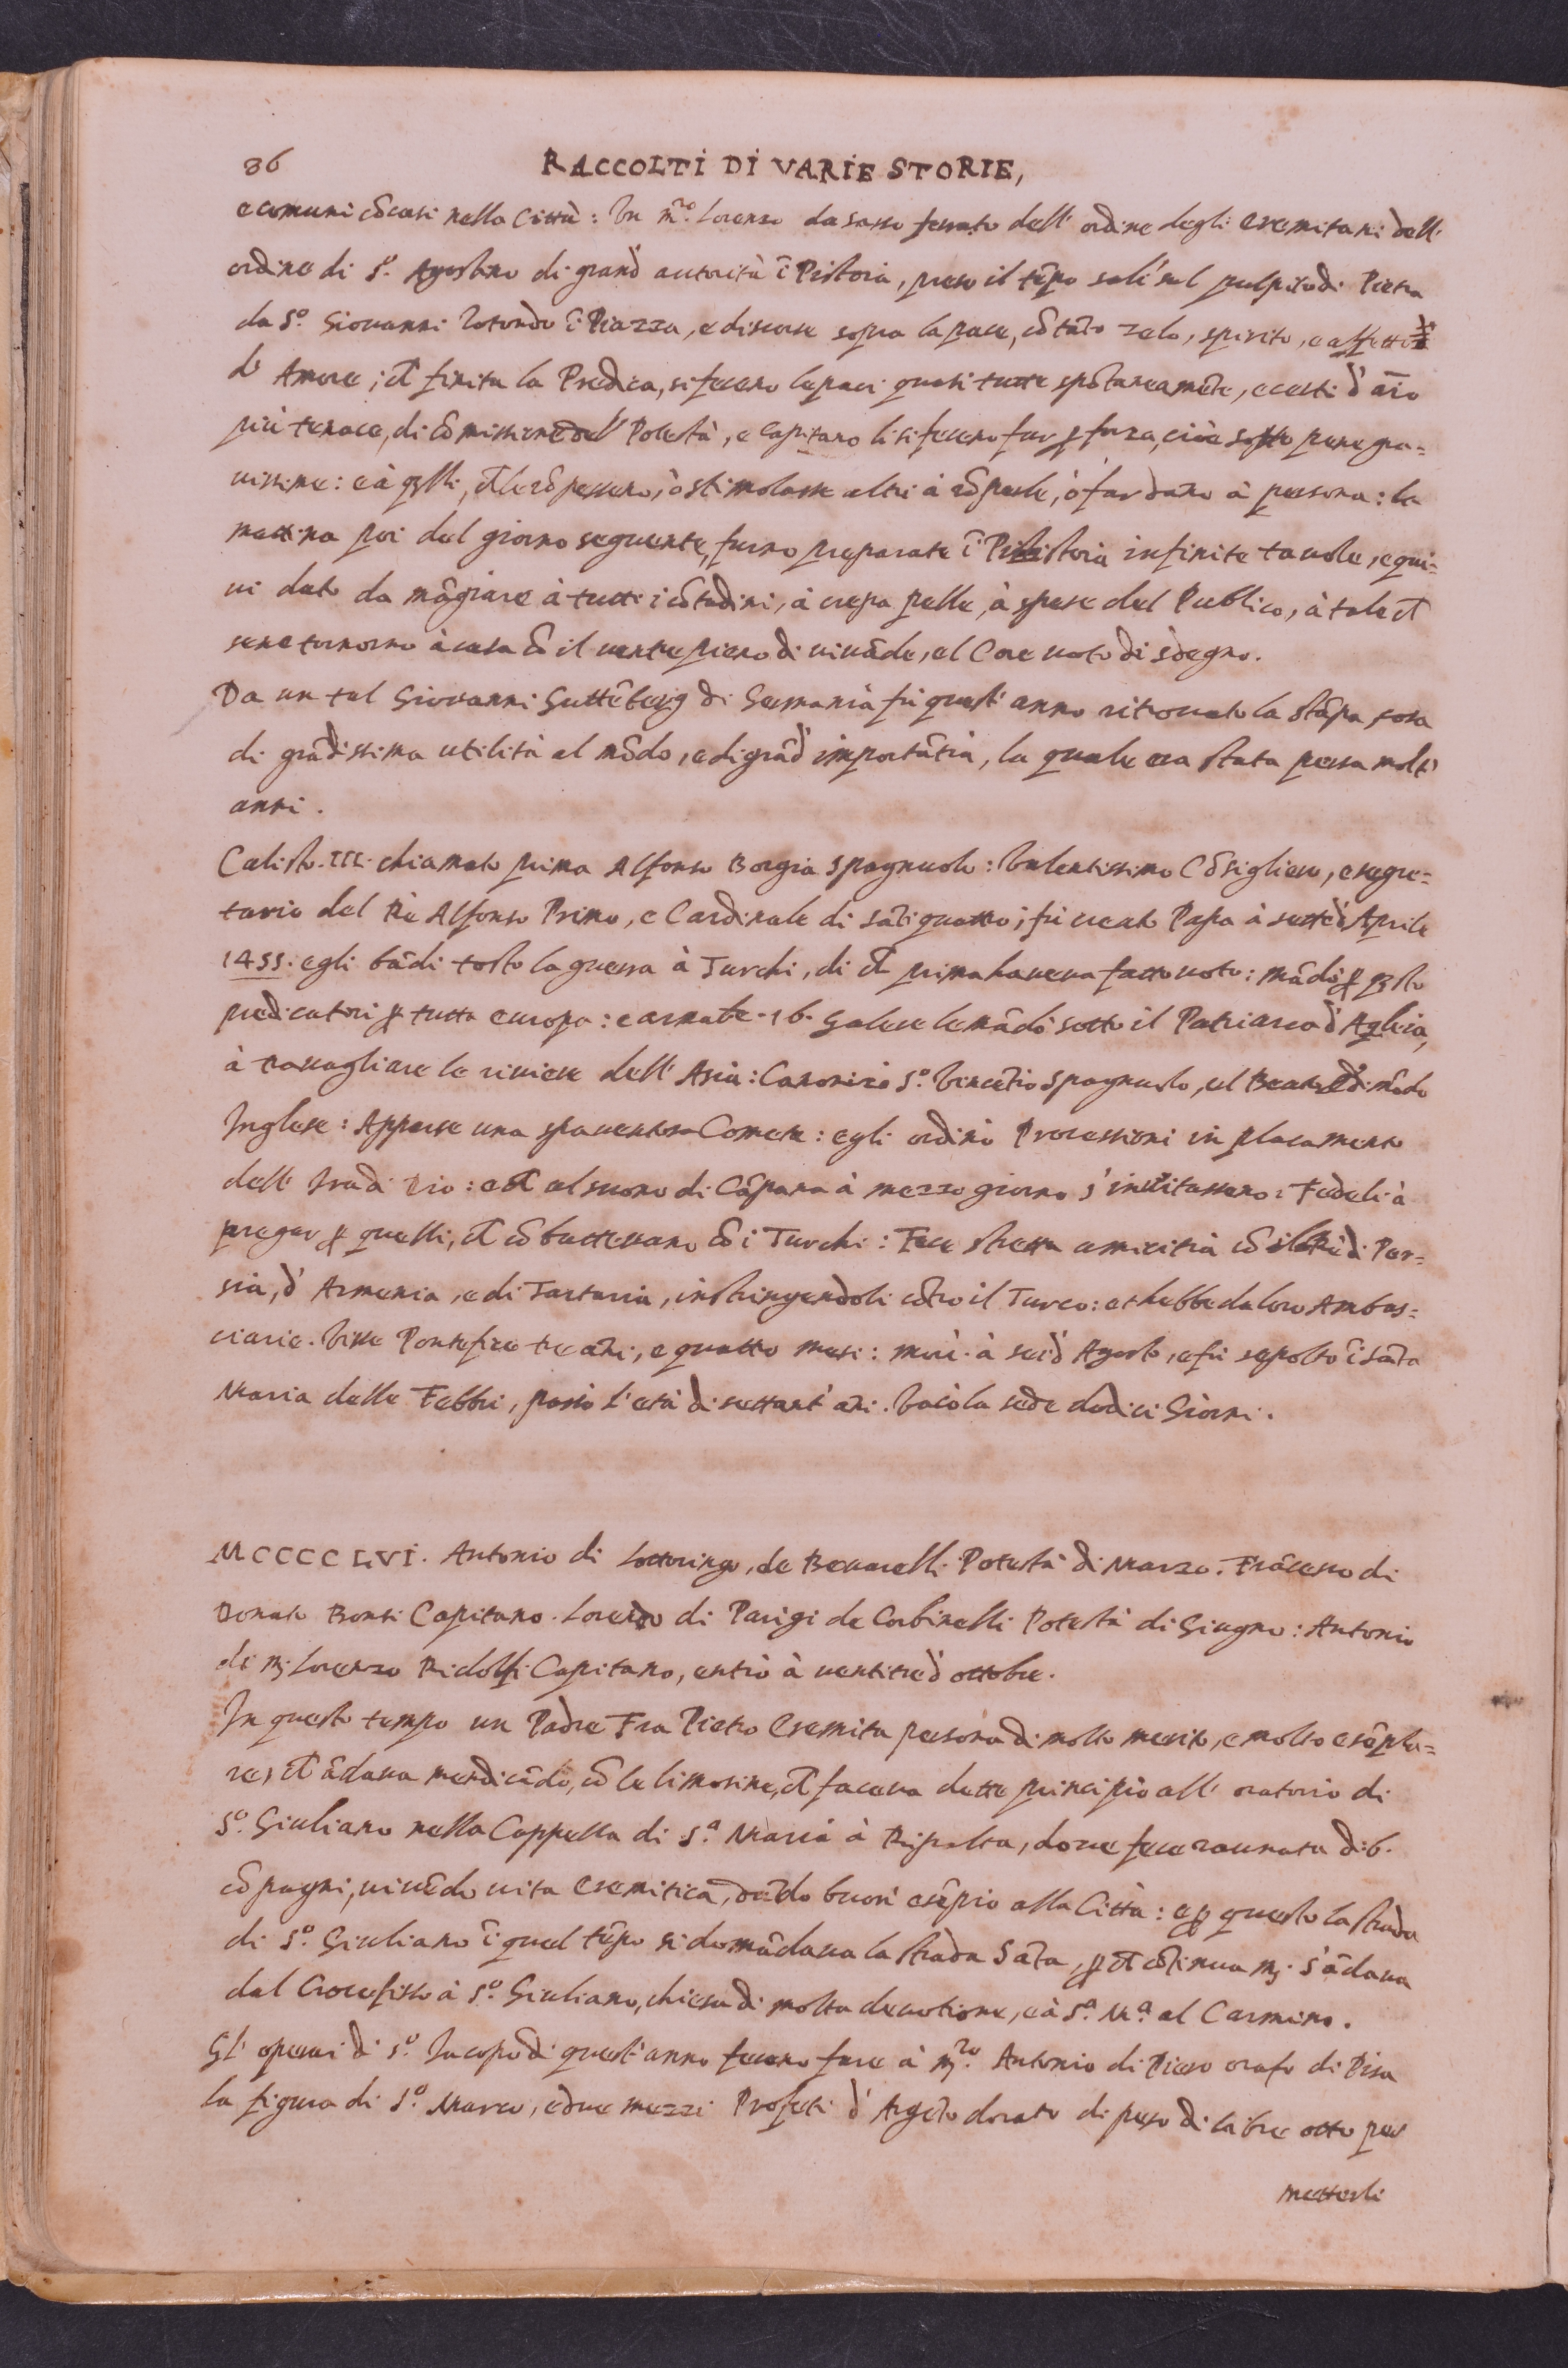 86 RACCOLTI DI VARIE STORIE,
e comuni cōcorsi nella Città: Un m.ro Lorenzo da Sasso ferrato dell' ordine degli eremitani dell'
ordine di S.o Agostino di grand' autorità ī Pistoia, preso il tēpo salì sul pulpito di Pietra
da S.o Giovanni Rotondo ī Piazza, e discorse sopra la pace, cō tāto zelo, spirito, e affetto
d' Amore; che finita la Predica, si fecero le paci quasi tutte spōtaneamēte, e certi d' aīo
più tenace, di cōmissione del Potestà, e Capitano li si fecero far ꝑ forza, cioè sotto pene gra=
vissime: e à qlli, che le rōpessero, ò stimolasse altri à rōperle, ò far dāno à persona: la
mattina poi del giorno seguente, furno preparate ī Pistoia infinite tavole, e qui=
vi dato da māgiare à tutti i cōtadini, à crepa pelle, à spese del Publico, à tale che
sene tornorno à casa cō il ventre pieno di vivāde, el Core voto di sdegno.
Da un tal Giovanni Guttēberg di Germania fù quest' anno ritrovato la stāpa cosa
di grādissima utilità al mōdo, e di grād' importātia, la quale era stata persa molt'
anni.
Calisto. III. chiamato prima Alfonso Borgia Spagnuolo: Valentissimo Cōsigliero, e segre=
tario del Rè Alfonso Primo, e Cardinale di Sāti quattro; fù creato Papa à sette d' Aprile
1455. egli bādì tosto la guerra à Turchi, di che prima haveva fatto voto: mādò ꝑ qsto
predicatori ꝑ tutta europa: e armate .16. Galere le mādò sotto il Patriarca d' Aqleia,
à travagliare le riviere dell' Asia: Canonizò S.o Vincētio Spagnuolo, el Beato Edimōdo
Inglese: Apparse una spaventosa Cometa: egli ordinò Processioni in placamento
dell' Ira di Dio: e che al suono di Cāpana à mezzo giorno s' invitassero i Fedeli à
pregar ꝑ quelli, che cōbattevano cō i Turchi: Fece stretta amicitia cō il Rè di Per=
sia, d' Armenia, e di Tartaria, instringendoli cōtro il Turco: et hebbe da loro Ambas=
ciarie. Visse Pontefice tre āni, e quattro mesi: morì à sei d' Agosto, e fù sepolto ī Sāta
Maria delle Febbri, passò l' età di settant' āni. Vacò la sede dodici Giorni.
MCCCCLVI. Antonio di Lottoringo, de Bonarelli Potestà di Marzo. Frācesco di
Donato Bonsi Capitano. Lorenzo di Parigi de Corbinelli Potestà di Giugno: Antonio
di M. Lorenzo Ridolfi Capitano, entrò à ventitre d' ottobre.
In questo tempo un Padre Fra Pietro Eremita persona di molto merito, e molto esēpla=
re, che ādava mendicādo, cō le limosine, che faceva dette principio all' oratorio di
S.o Giuliano nella Cappella di S.a Maria à Ripalta, dove fece raunata di 6.
cōpagni, vivēdo vita Eremitica, dādo buon' esēpio alla Città: e ꝑ questo la strada
di S.o Giuliano ī quel tēpo si domādava la strada Sāta, ꝑ che cōtinuam. s' ādava
dal Crocefisso à S.o Giuliano, chiesa di molta devotione, e à S.a M.a al Carmino.
Gl' operai di S.o Iacopo di quest' anno fecero fare à M.ro Antonio di Piero orafo di Pisa
la figura di S.o Marco, e due mezzi Profeti d' Argēto dorato di peso di libre otto per
metterli